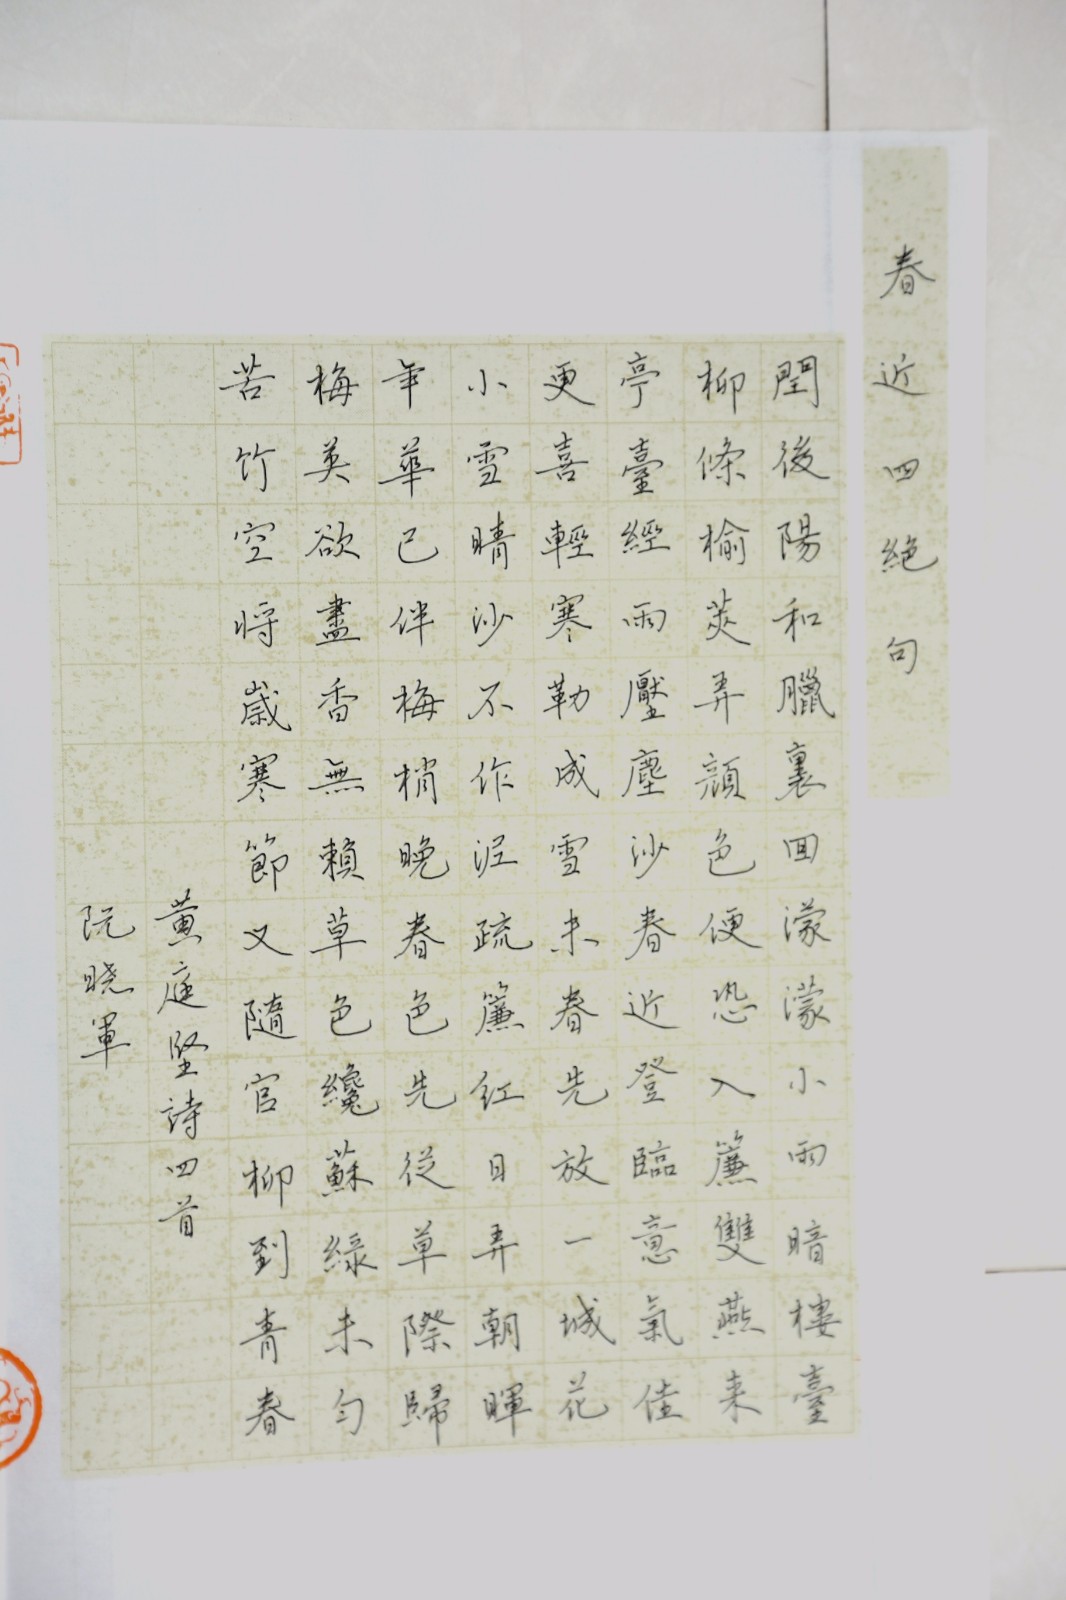 春近四絶句
閏後陽和臘裏回濛濛小雨暗樓臺
柳條榆莢弄顔色便恐入簾雙燕来
亭臺經雨壓塵沙春近登臨意氣佳
更喜輕寒勒成雪未春先放一城花
小雪晴沙不作泥疏簾紅日弄朝暉
年華已伴梅梢晚春色先從草際歸
梅英欲盡香無賴草色纔蘇綠未勻
苦竹空将歲寒節又隨官柳到青春
黄庭堅詩四首
阮曉軍